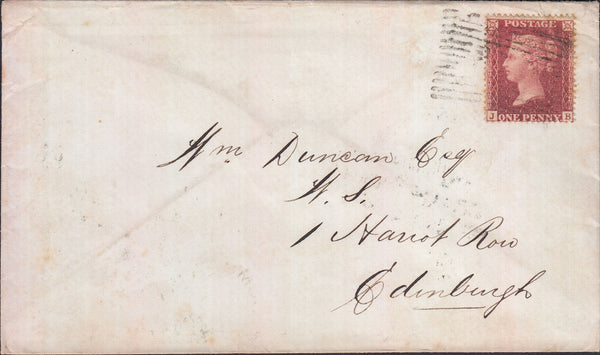 POSTAGE
J ONE PENNY B
Wm Duncan Esq
W. S.
1 Hariot Row
Edinburgh